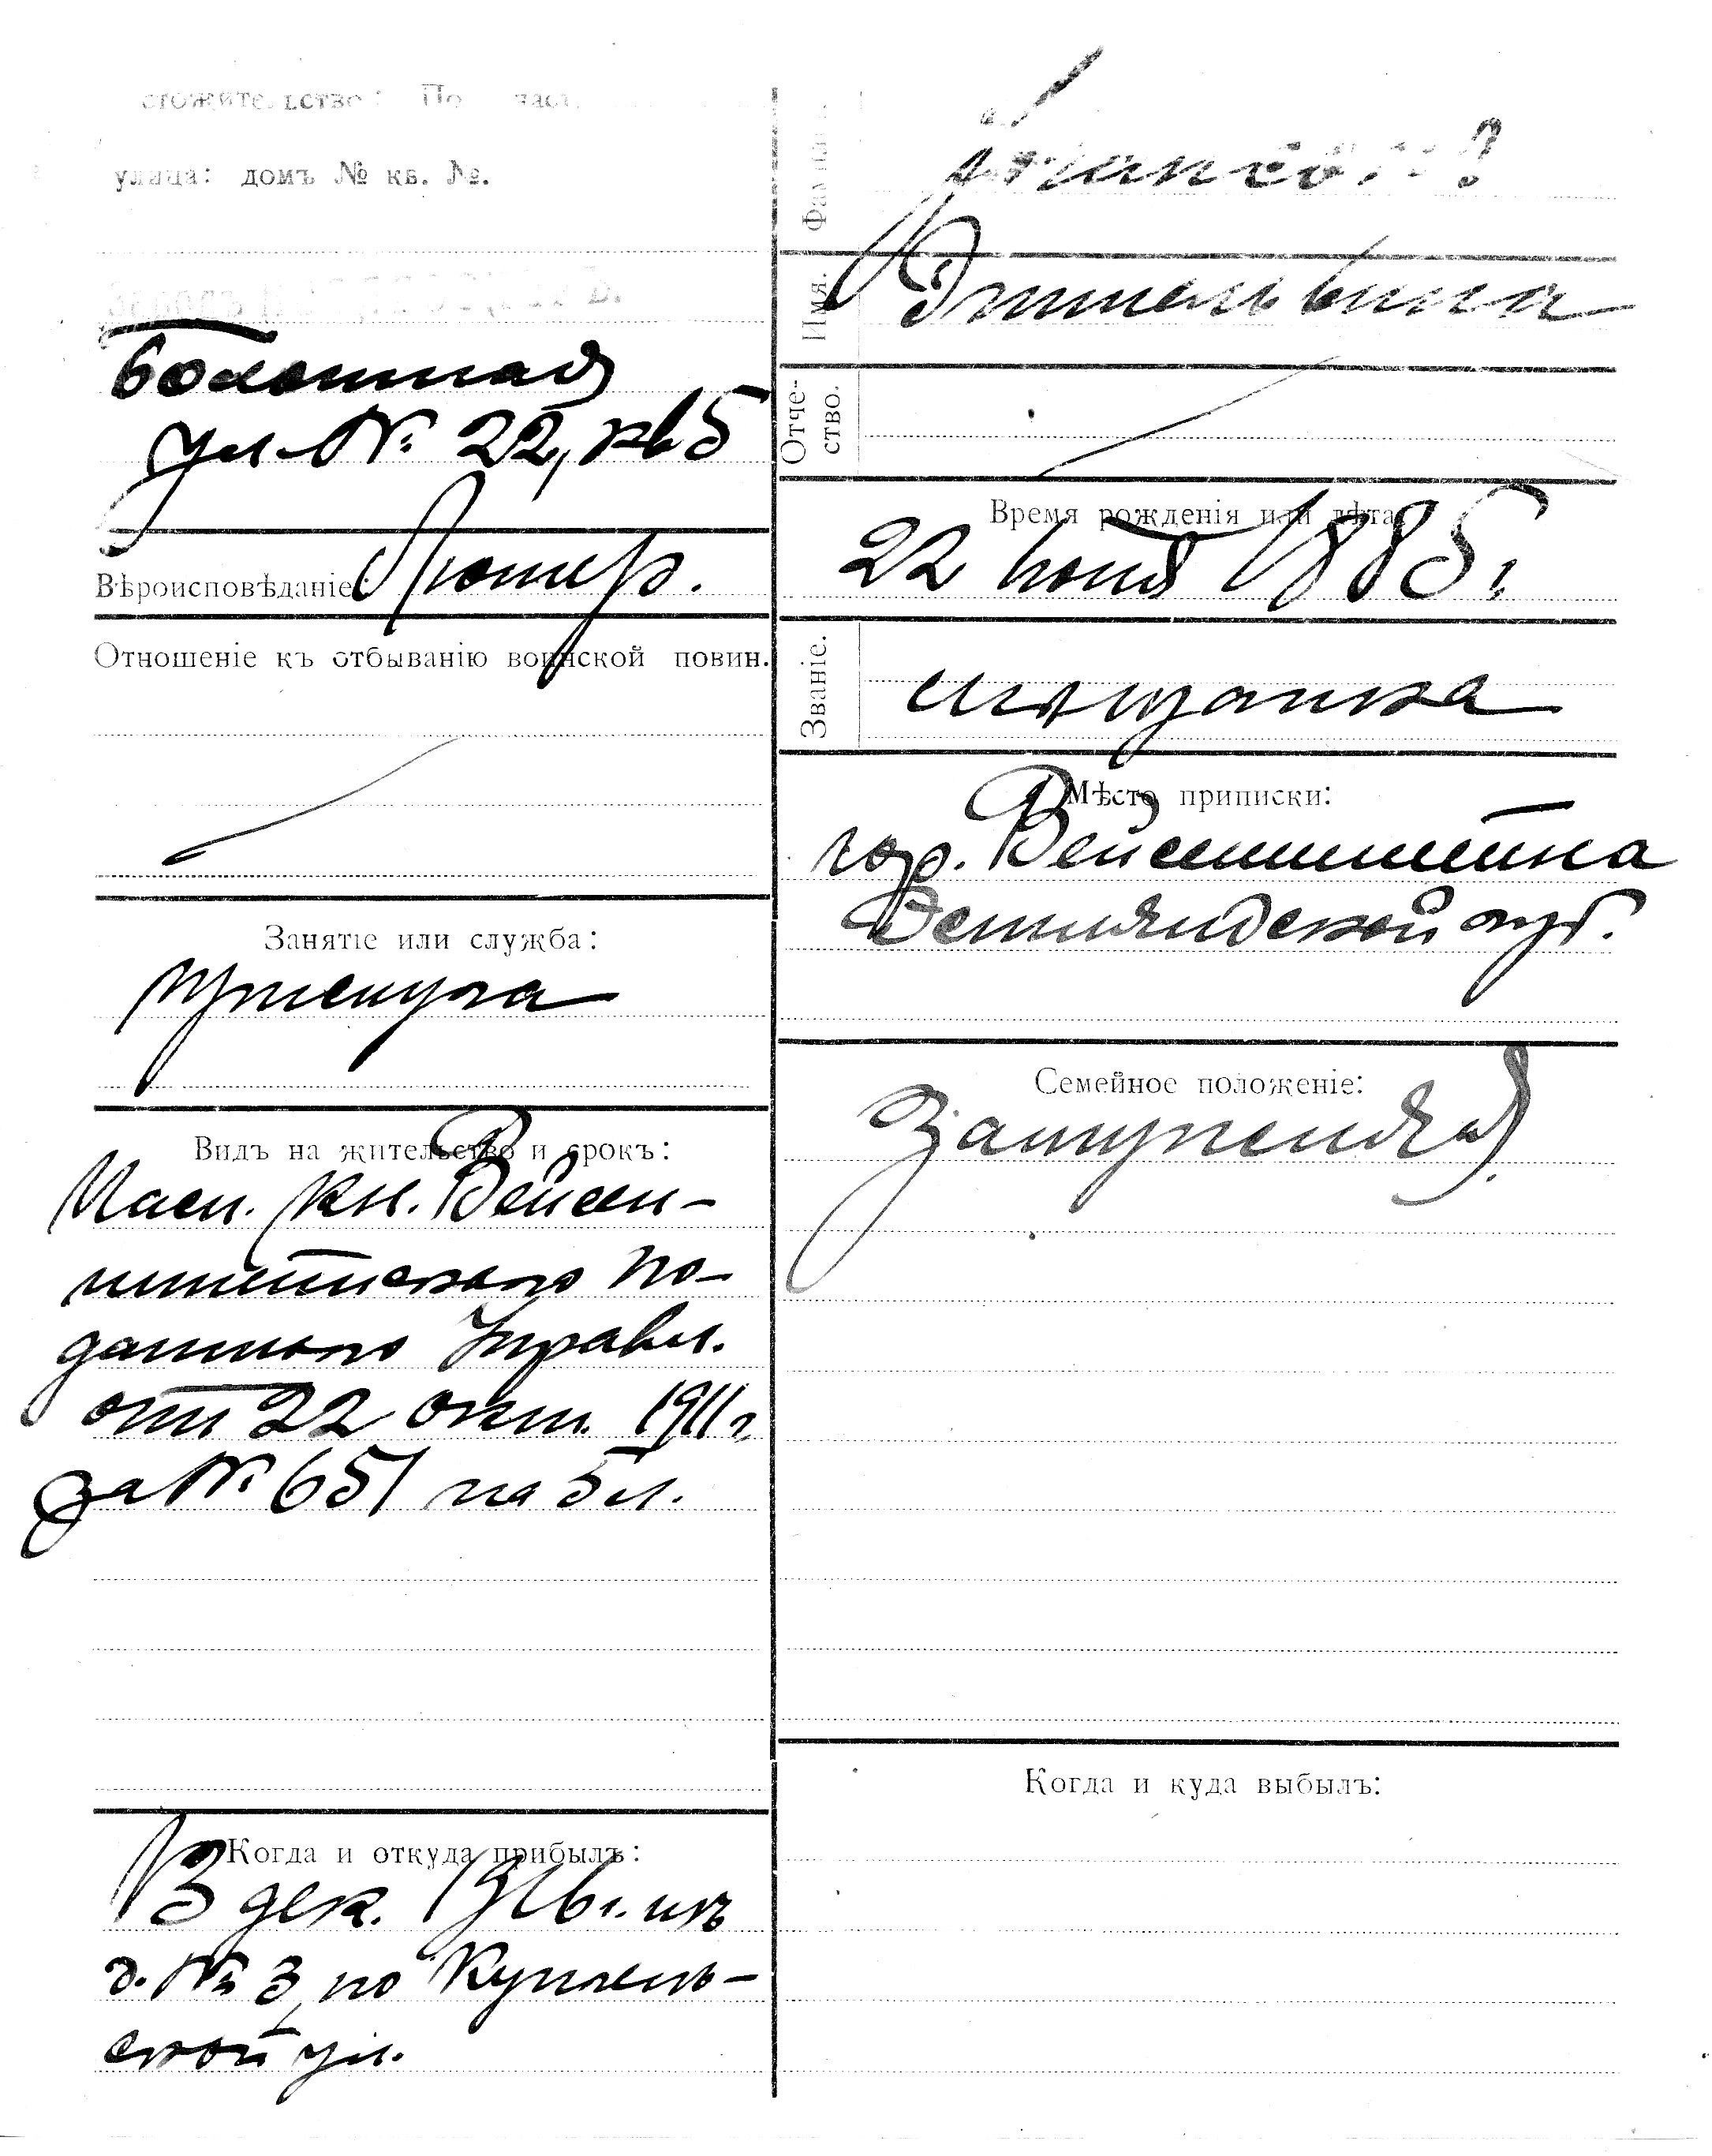 улица: домъ № кв. №.
Болотная
ул. № 22, кв 5
Вѣроисповѣданіе: Лютер.
Отношеніе къ отбыванію воинской повин.
Занятіе или служба:
Видъ на жительство и срокъ:
Пасп. кн. Вейсен-
штейнскаго по-
датнаго Управл.
отъ 22 окт. 1911 г
за № 651 на 5 л.
Когда и откуда прибылъ:
13 дек. 1916 г. изъ
д. № 3, по
ской ул.
Имя.
Отче-
ство.
Время рожденія или лѣта
22 Іюня 1885 г
Званіе.
мѣщанка
Мѣсто приписки:
гор. Вейсенштейна
Эстляндской губ.
Семейное положеніе:
замужняя
Когда и куда выбылъ: